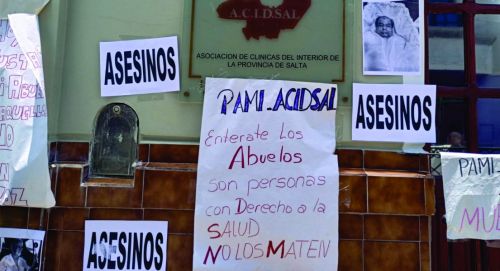 A.C.I.D.SAL
ASOCIACION DE CLINICAS DEL INTERIOR DE
LA PROVINCIA DE SALTA
ASESINOS
PAMI_ACIDSAL
Enterate Los
Abuelos
son personas
con Derecho a la
SALUD
NO LOS MATEN
ASESINOS
ASESINOS
PAMI
MU